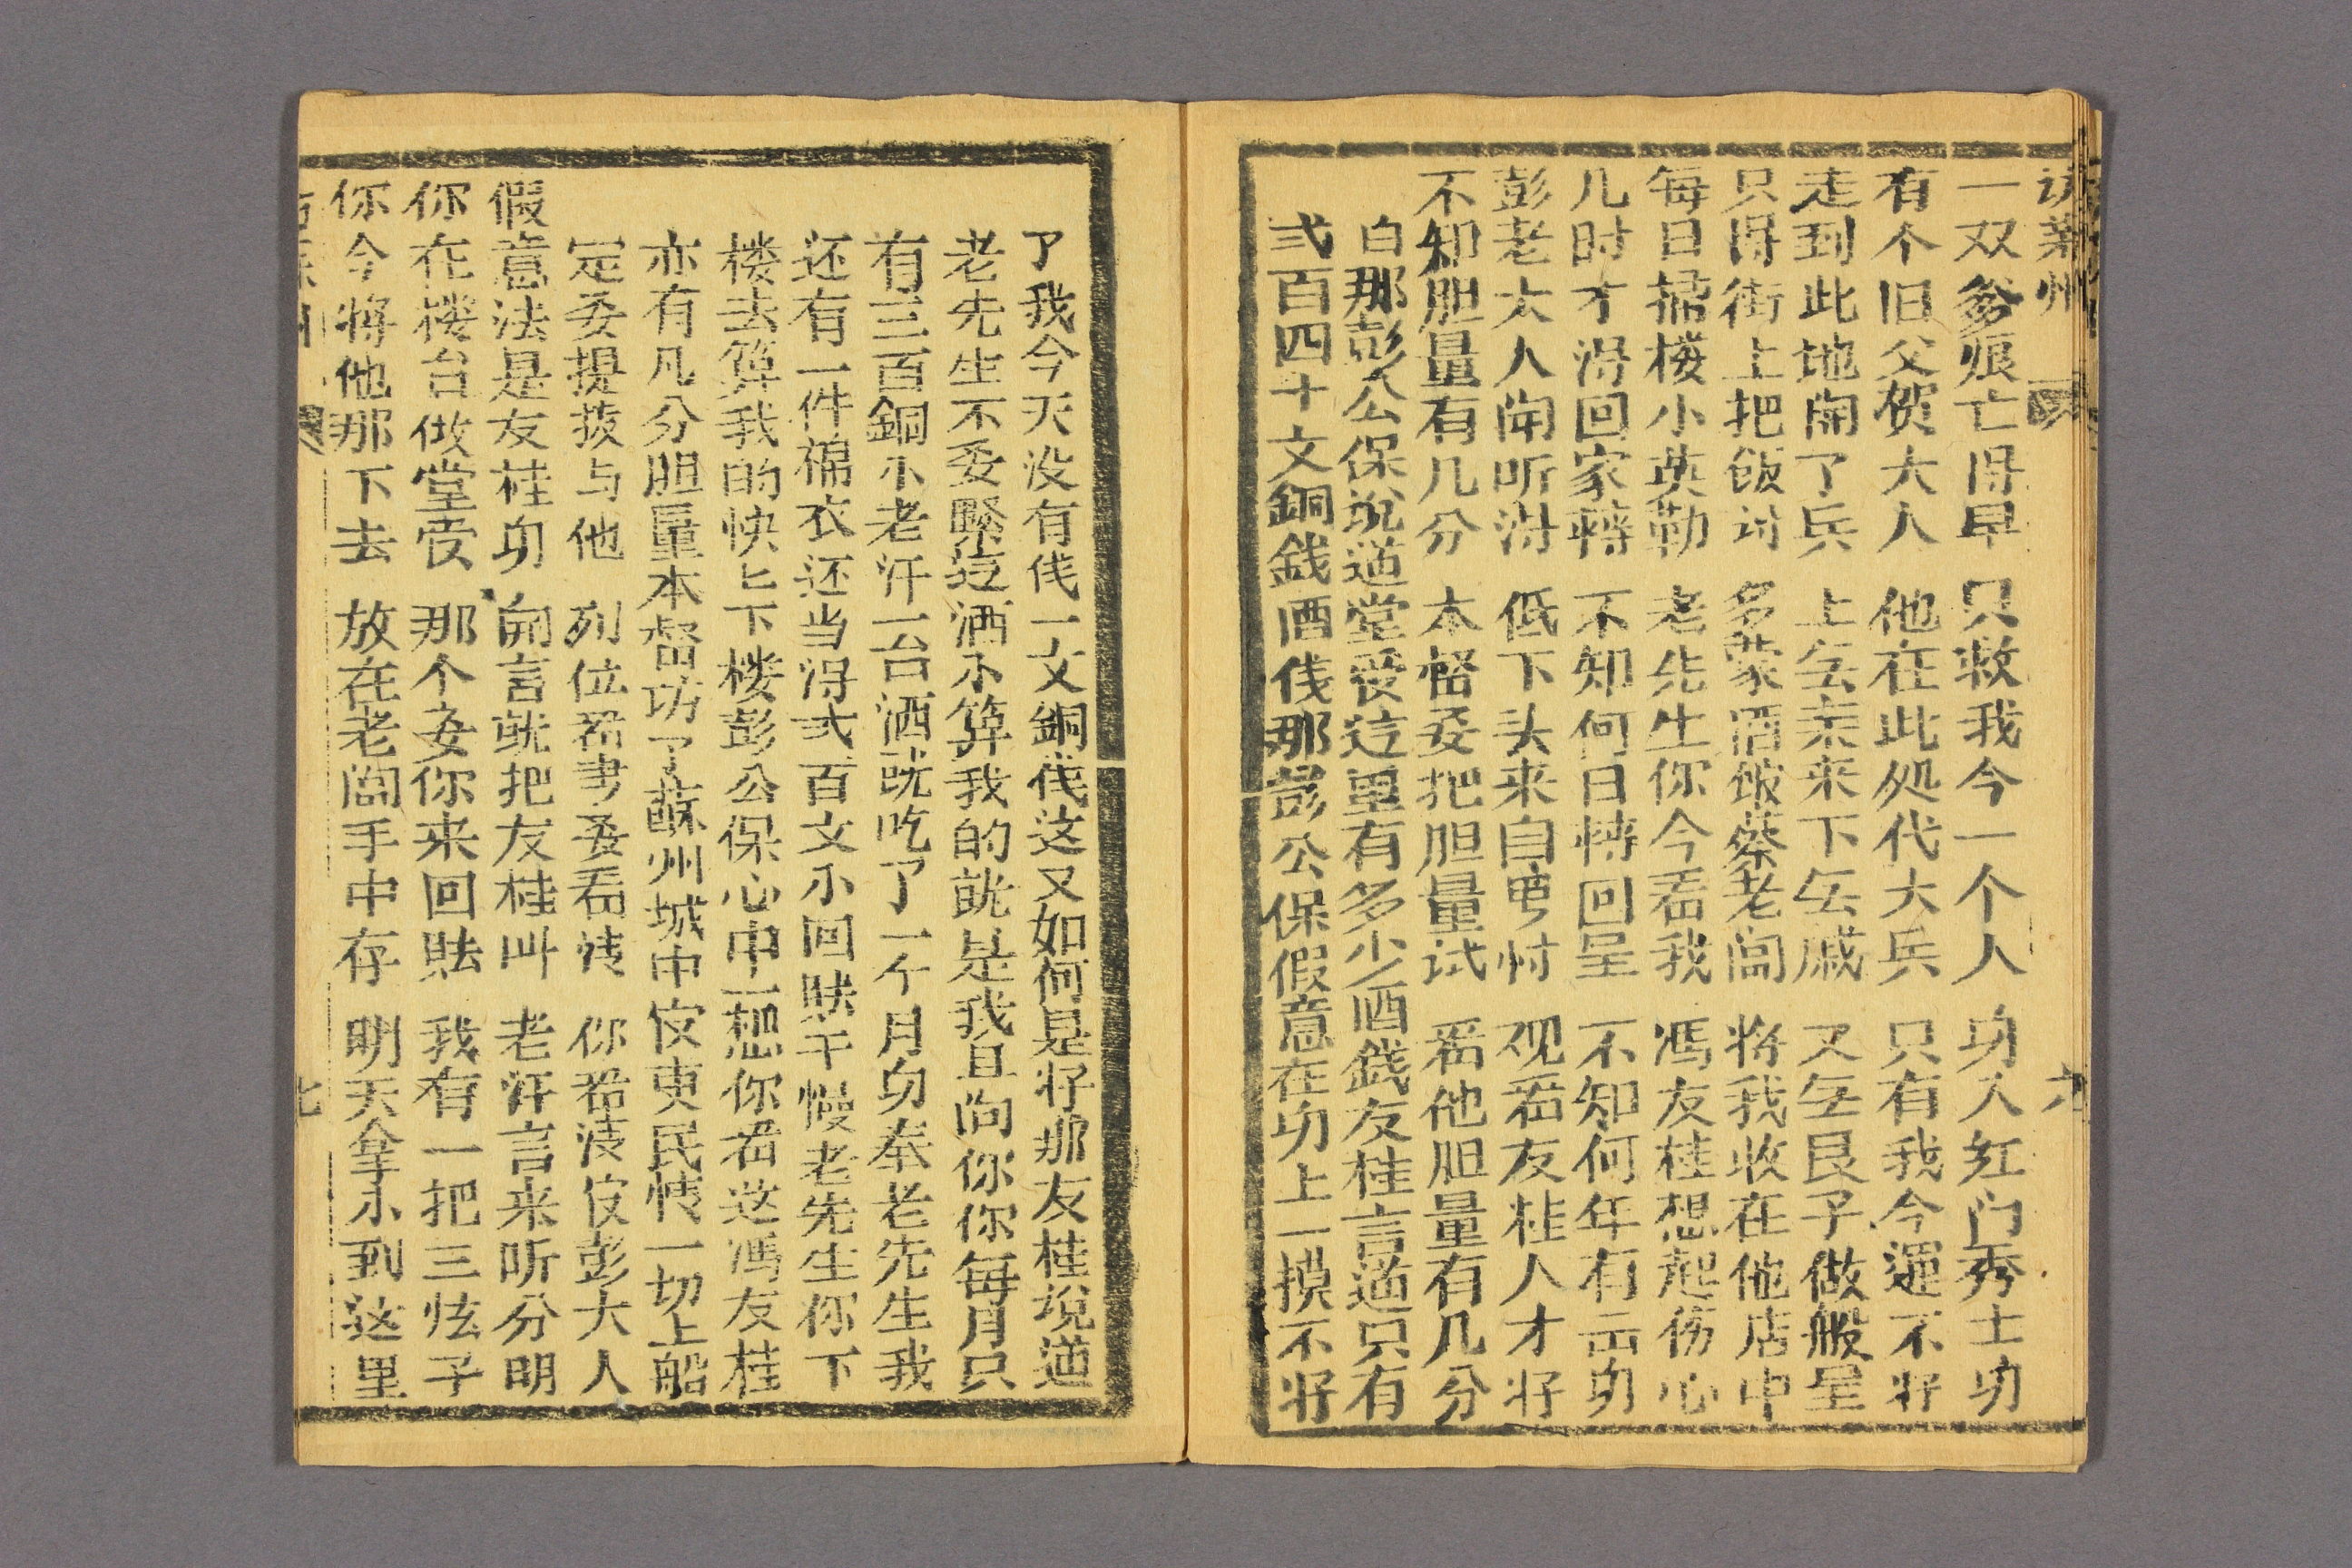 访苏州 六
一双爹痕亡得早 只救我今一个人 功入红门秀士功
有个旧父贺大人 他在此処代大兵 只有我今运不好
走到此地開了兵 上无亲来下无戚 又无艮子做般呈
只得街上把飯讨 多蒙酒飯蔡老闆 将我收在他店中
每日掃楼小英勤 老先生你今看我 馮友桂想起伤心
几时才淂回家轉 不知何日轉回呈 不知何年有云功
彭老大人闻听淂 低下头来自忖 观看友桂人才好
不知胆量有几分 本督要把胆量试 看他胆量有几分
白那彭公保説道堂受这里有多少酒錢友桂言道只有
弍百四十文銅錢酒伐那彭公保假意在功上一摸不好
了我今天没有伐一文銅伐这又如何是好那友桂説道
老先生不要緊这酒小算我的就是我且问你你每月只
有三百銅小老汗一台酒就吃了一个月功奉老先生我
还有一件棉衣还当淂弍百文小回賬干慢老先生你下
楼去算我的快匕下楼彭公保心中一想你看这馮友桂
亦有几分胆量本督功了蘇州城中伩吏民情一切上船
定要提拔与他 列位看書要看情 你看清伩彭大人
假意法是友桂功 開言就把友桂叫 老汗言来听分明
你在楼台做堂受 那个要你来回賬 我有一把三炫子
你今将他那下去 放在老闆手中存 明天拿小到这里
七